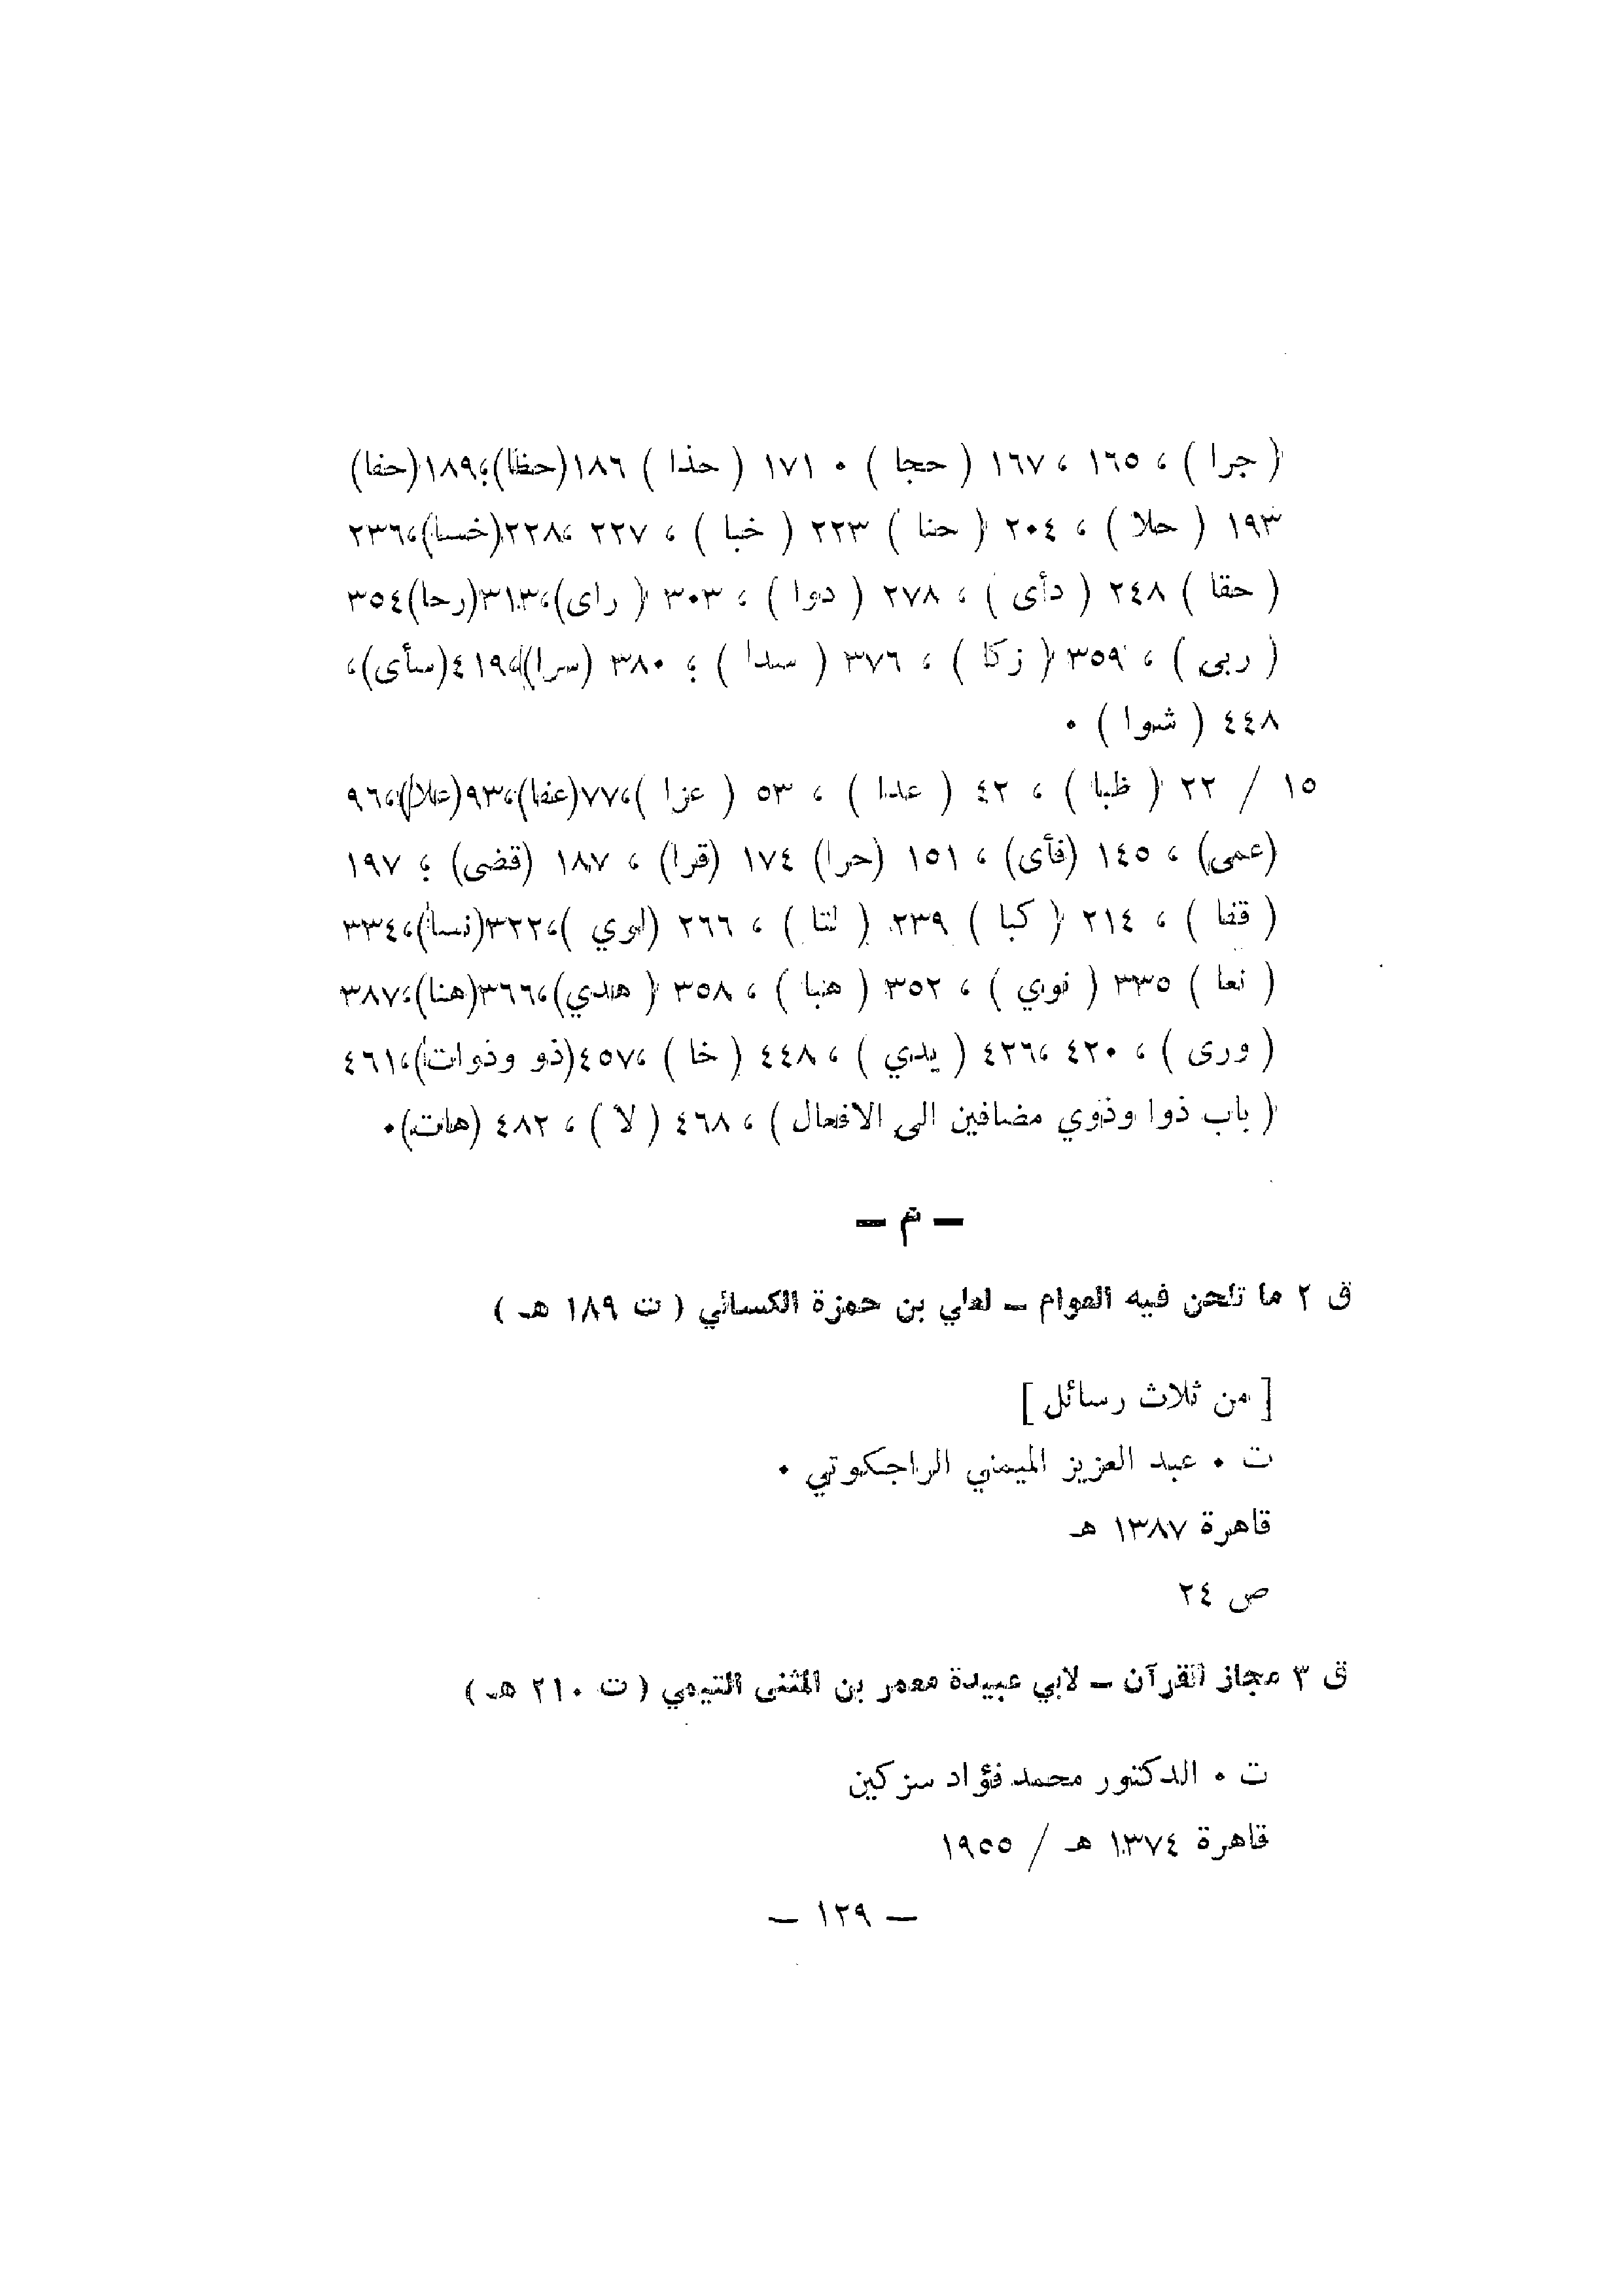 ( جرا ) ، ١٦٥ ، ١٦٧ ( حجا ) . ١٧١ ( حذا ) ١٨٦ (حظا)،١٨٩(حفا)
١٩٣ ( حلا ) ، ٢٠٤ ( حنا ) ٢٢٣ ( خبا ) ، ٢٢٧ ،٢٢٨(خسا)،٢٣٦
( حقا ) ٢٤٨ ( دأى ) ، ٢٧٨ ( دوا ) ، ٣٠٣ ( راى)،٣١٣(رحا)٣٥٤
( ربى ) ، ٣٥٩ ( زكا ) ، ٣٧٦ ( سدا ) ؛ ٣٨٠ (سرا)،٤١٩(سأى)،
٤٤٨ ( شوا ) .
١٥ / ٢٢ ( ظبا ) ، ٤٢ ( عدا ) ، ٥٣ ( عزا )،٧٧(عفا)،٩٣(علا)،٩٦
(عمى) ، ١٤٥ (فأى) ، ١٥١ (حرا) ١٧٤ (قرا) ، ١٨٧ (قضى) ؛ ١٩٧
( قفا ) ، ٢١٤ ( كبا ) ٢٣٩ ( لتا ) ، ٢٦٦ (لوي )،٣٢٢(نسا)،٣٣٤
( نعا ) ٣٣٥ ( نوي ) ، ٣٥٢ ( هبا ) ، ٣٥٨ ( هدي)،٣٦٦(هنا)،٣٨٧
( ورى ) ، ٤٢٠ ،٤٢٦ ( يدي ) ، ٤٤٨ ( خا ) ،٤٥٧(ذو وذوات)،٤٦١
( باب ذوا وذوي مضافين الى الافعال ) ، ٤٦٨ ( لا ) ، ٤٨٢ (هات).
– م –
ق ٢ ما تلحن فيه العوام – لعلي بن حمزة الكسائي ( ت ١٨٩ هـ )
[ من ثلاث رسائل ]
ت . عبد العزيز الميمني الراجكوتي .
قاهرة ١٣٨٧ هـ
ص ٢٤
ق ٣ مجاز القرآن – لابي عبيدة معمر بن المثنى التيمي ( ت ٢١٠ هـ )
ت . الدكتور محمد فؤاد سزكين
قاهرة ١٣٧٤ هـ / ١٩٥٥
– ١٢٩ –